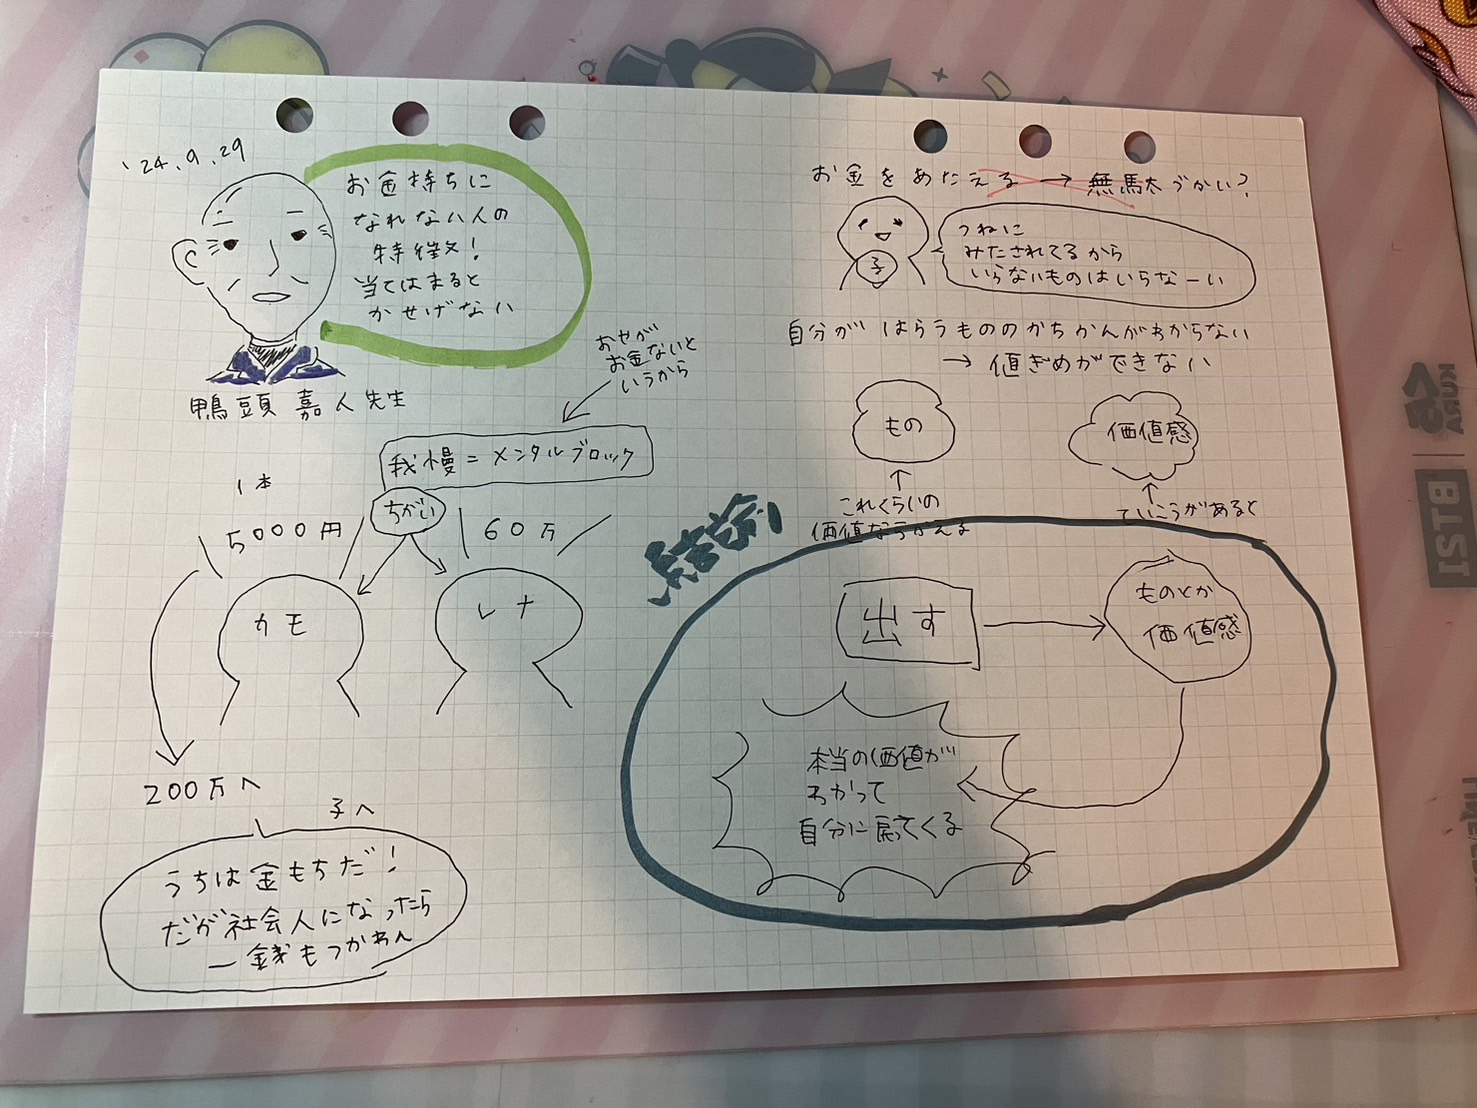 '24.9.29
お金持ちに
なれない人の
特徴!
当てはまると
かせげない
鴨頭嘉人先生
おやが
お金ないと
いうから
我慢=メンタルブロック
ちがい
1本
5000円
60万
カモ
レナ
200万へ
子へ
うちは金もちだ!
だが社会人になったら
一銭もつかわん
お金をあたえる→無駄づかい?
子
つねに
みたされてるから
いらないものはいらなーい
自分がはらうもののかちかんがわからない
→値ぎめができない
もの
価値感
これくらいの
価値なら
ていこうがあると
結論
出す
ものとか
価値感
本当の価値が
わかって
自分に戻ってくる
KURA
BTSI